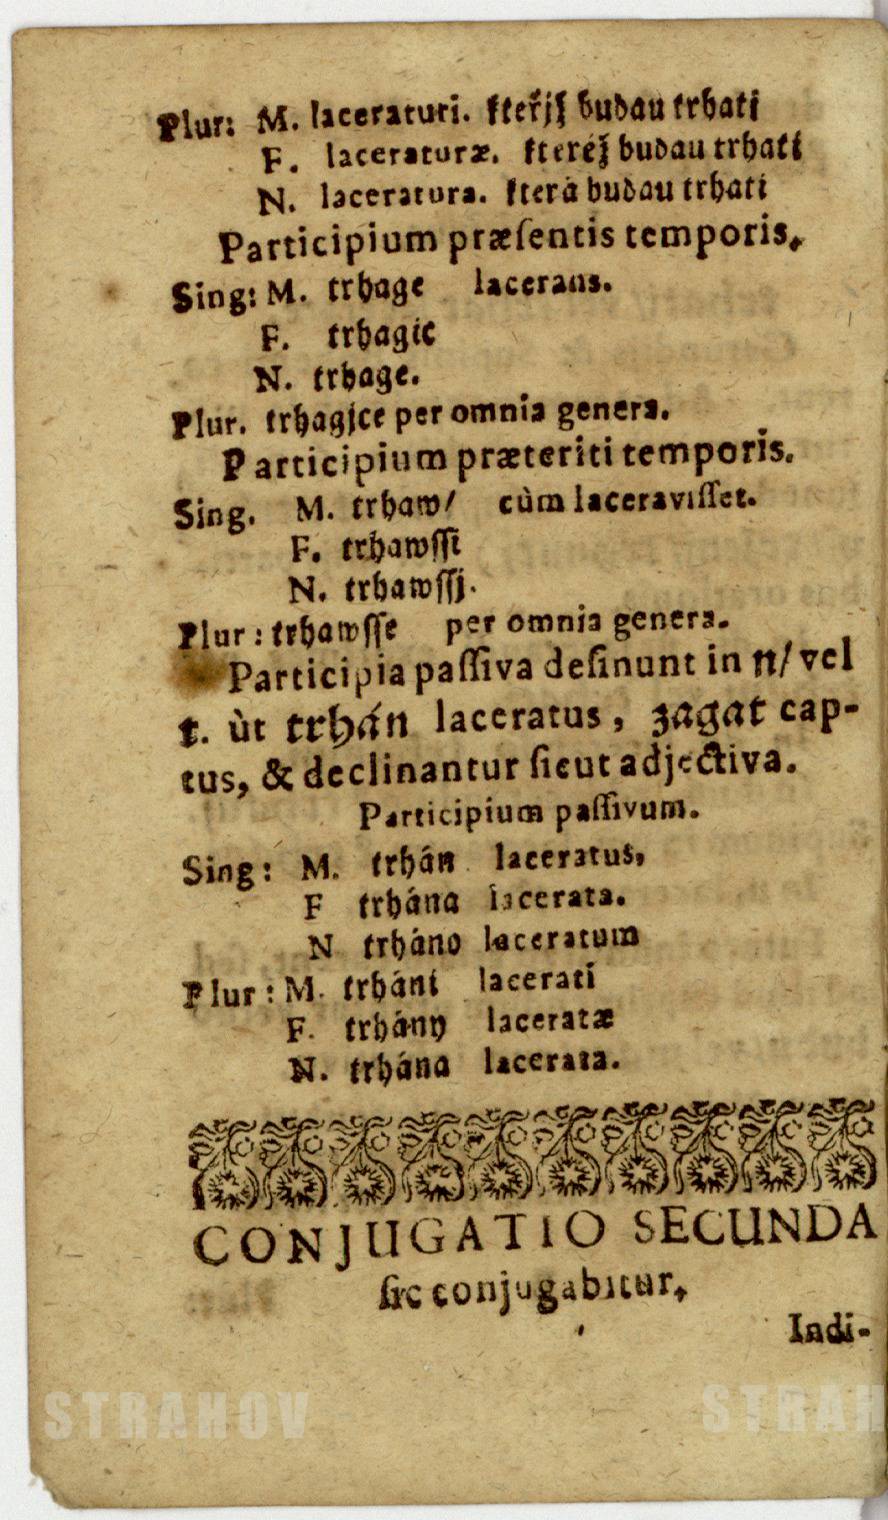 Plur: M. laceraturi. kteřjž budau trhati
F. laceraturæ. kteréž budau trhati
N. laceratura. kterà budau trhati
Participium præſentis temporis.
Sing: M. trhage lacerans.
F. trhagic
N. trhage.
Plur. trhagjce per omnia genera.
Participium præteriti temporis.
Sing. M. trhaw/ cùm laceraviſſet.
F. trhawſſi
N. trhawſſj.
Plur: trhawſſe per omnia genera.
Participia paſſiva deſinunt in n/ vel
t. ùt trhán laceratus, zagat cap-
tus, & declinantur ſicut adjectiva.
Participium paſſivum.
Sing: M. trhán laceratus,
F trhána lacerata.
N tрháno laceratum
Plur: M. trháni lacerati
F. trhány laceratæ
N. trhána lacerata.
CONJUGATIO SECUNDA
ſic conjugabitur.
Indi-
STRAHOV
STRAH